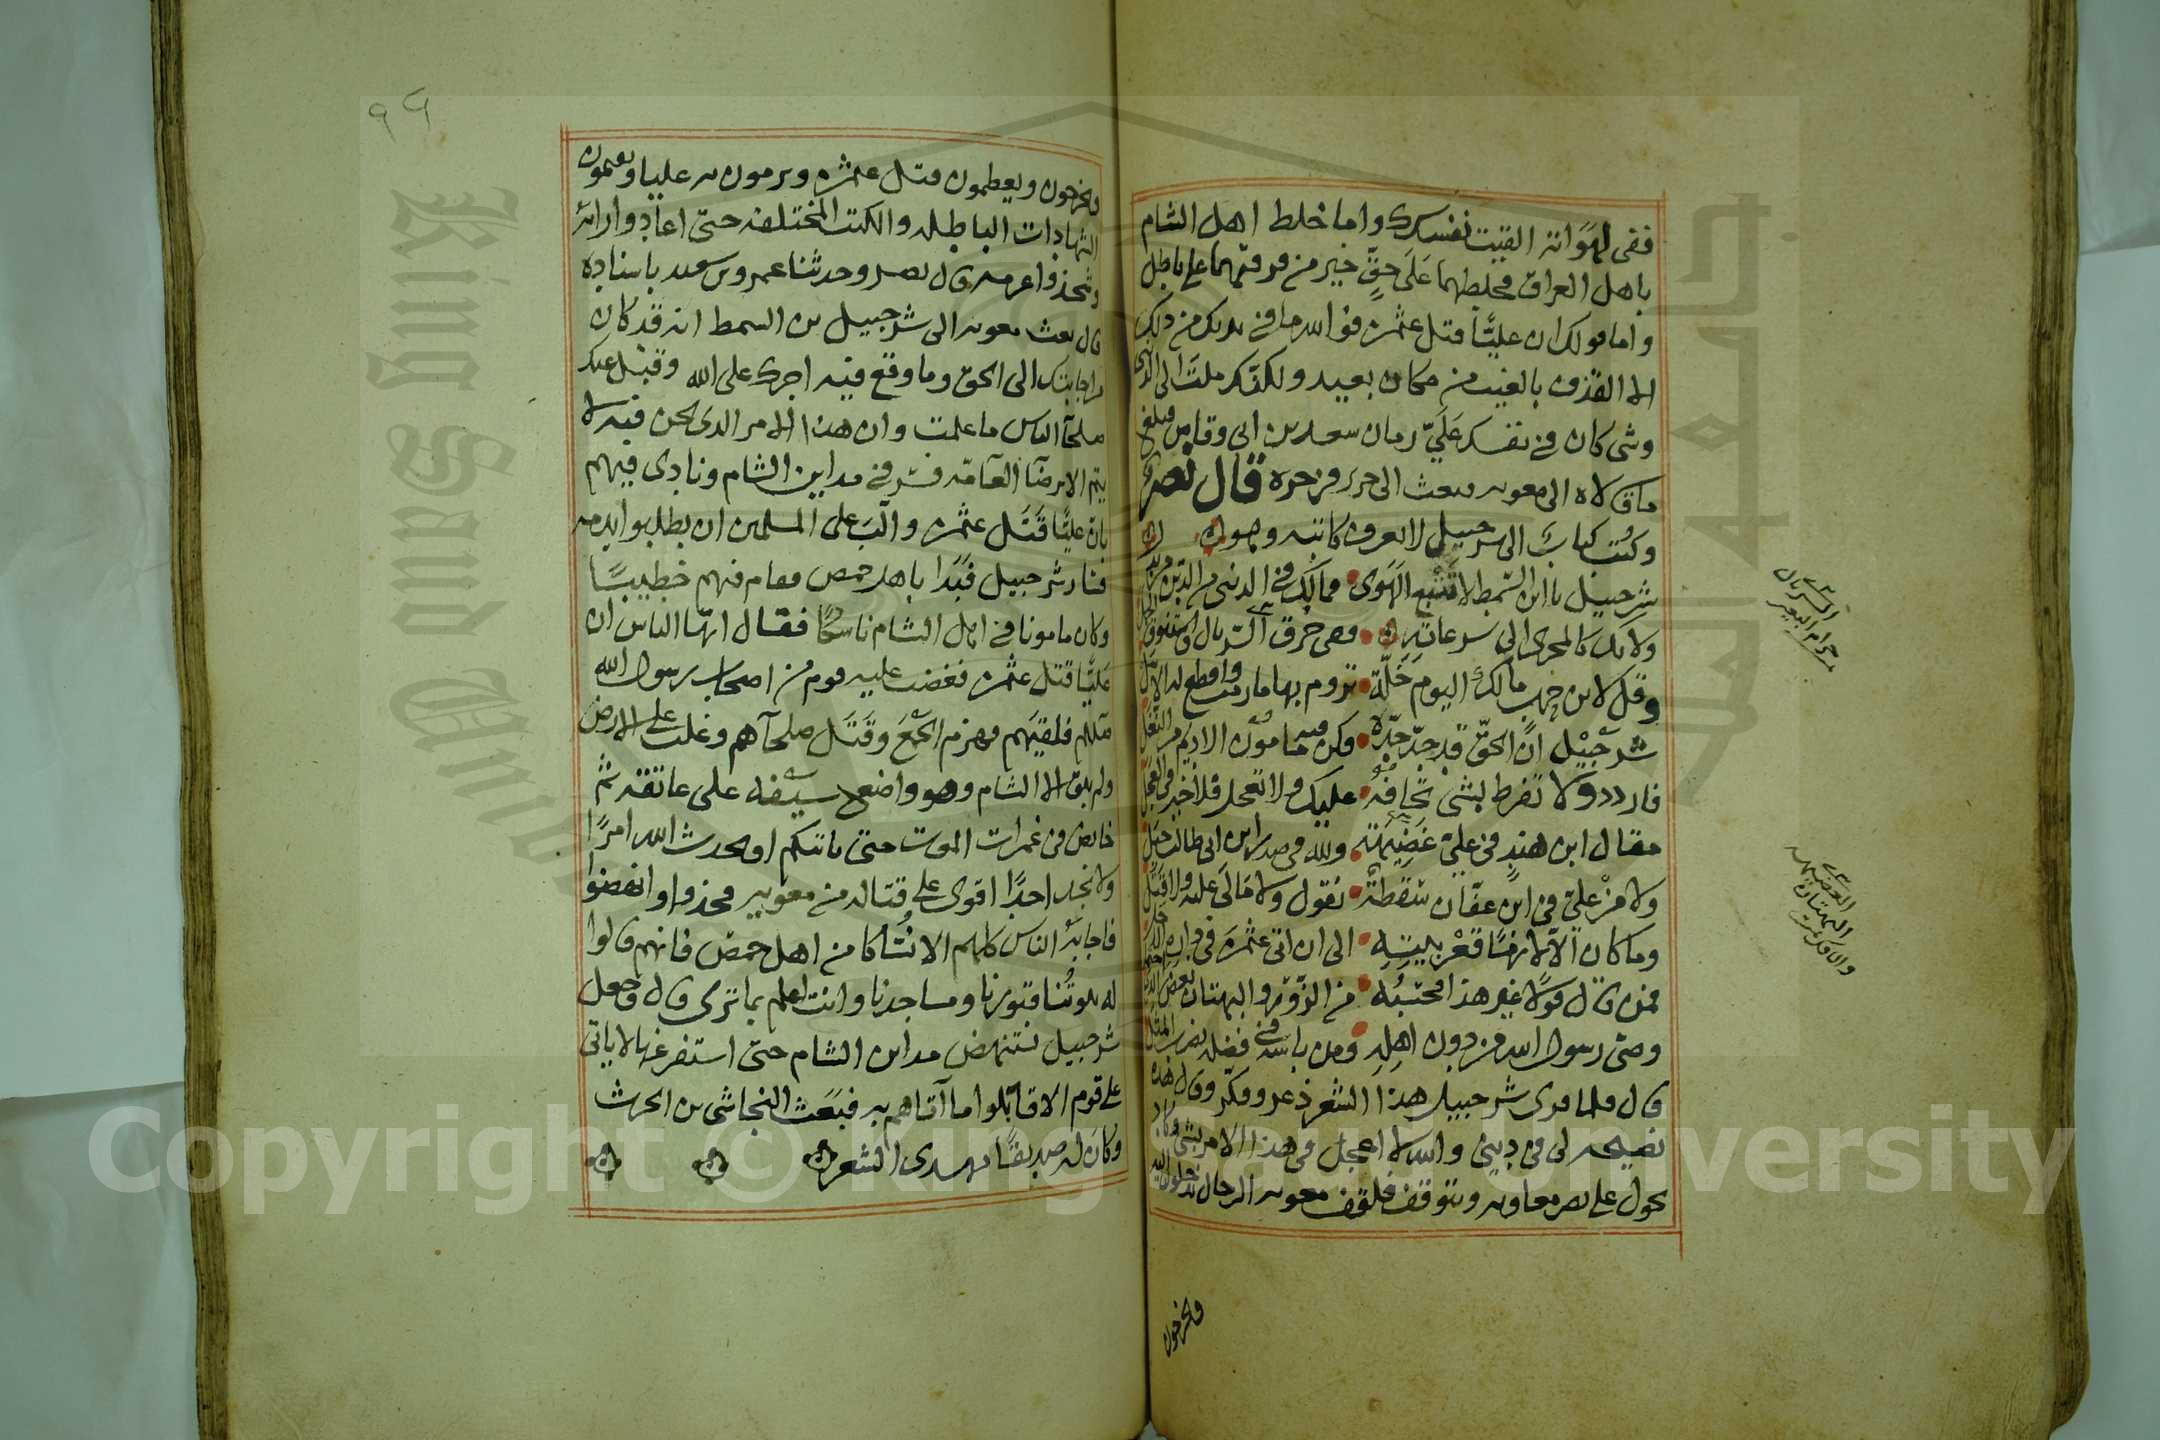 ففى لهَوَاته القيت نفسك واما خلط اهل الشام
باهل العراق فخلطهما عَلَى حقٍّ خير من فرقتهما على باطل
واما قولك ان عليًّا قتل عثمن فوالله ما فى يديك من ذلك
الا القذف بالغيب من مكان بعيد ولكنك ملتَ الى الدنيا
وشى كان فى نفسك عَلَيّ زمان سعد بن ابى وقاص فبلغ
ما قالاه الى معويه فبعث الى جرير فزجره قال نصر
وكُتب كتابٌ الى شرحبيل لا يعرف كاتبه وهو
شرحبيل يا ابن السّمط لا تَتْبع الهَوَى فمالك فى الدنيى من الدّين من بدل
ولا تك كالمجرى الى شر غايةٍ فقد خرق السّربال واستنوق الجمل
وقل لابن حرب مالك اليوم خَلّة تروم بها ما رمت واقطع له الامل
شرحْبيْل انّ الحقّ قد جدّ جِدّهُ فكن فيه مامون الاديم من النّغل
فارودد ولا تفرط بشئ تخافهُ عليك ولا تعجل فلا خير فى العجل
مقال ابن هندٍ فى علىّ عَضِيْهَة ولله فى صدر ابن ابى طالب اجل
ولا مزْ علىّ فى ابن عفّان سَقطةٌ نقول ولا مالَى عليه ولا قَتَل
وما كان الّا لازمًا قَعْر بيته الى ان اتى عثمنَ فى داره الاجل
فمن قال قولًا غير هذا فحسْبُه من الزّور والبهتان بعض الذى
وصى رسول الله من دون اهله ومن باسمه فى فضله يضرب المثل
قال فلما قرى شرحبيل هذا الشعر ذعر وفكّر وقال هذه
نصيحه لى فى دينى والله لا اعجل فى هذا الامر بشى وكاد
يحول على نصر معاويه ويتوقف فلفف معويه الرجال يدخلون اليه
السربال
حرام البعير
العضيهه
البهتان
ويخرجون
٩٩
ويخرجون ويعظمون قتل عثمن ويرمون به عليا ويقيمون
الشهادات الباطله والكتب المختلفه حتى اعادوا رائه
وشحذوا عزمه قال نصر وحدثنا عمرو بن سعيد باسناده
قال بعث معويه الى شرحبيل بن السمط انه قد كان
من اجابتك الى الحقّ وما وقع فيه اجرك على الله وقبل عنك
صلحآ الناس ما علمت وان هذا الامر الذى نحن فيه لا
يتم الا برضآ العآمّه فسر فى مداين الشام ونادى فيهم
بانّ عليًّا قَتَل عثمن واجب على المسلمين ان يطلبوا بدمه
فسار شرحبيل فبَدا باهل حمص فقام فيهم خطيبًا
وكان مامونا فى اهل الشام ناسكًا فقال ايّها الناس ان
عليًّا قتل عثمن فغضب عليه قوم من اصحاب رسول الله
صلعم فلقيَهم فهزم الجَمْعَ وقَتَل صلحآهم وغلب على الارض
ولم يبق الا الشام وهو واضعٌ سيفه على عاتقه ثمّ
خايض فى غمرات الموت حتّى ياتيكم او يحدث الله امرًا
ولا نجد احدًا اقوى على قتاله من معويه فجذوا وانهضوا
فاجابَهُ الناس كلهم الا نُسّاكا من اهل حمصَ فانهم قالوا
له بيوتُنا قبورنا ومساجدنا وانت اعلم بما ترى قال وجعل
شرحبيل يستنهض مدآين الشام حتى استفرغها لا ياتى
على قوم الا قابلوا ما آتاهم به فبَعَث النجاشى بن الحرث
وكان له صديقًا بهدى الشعر